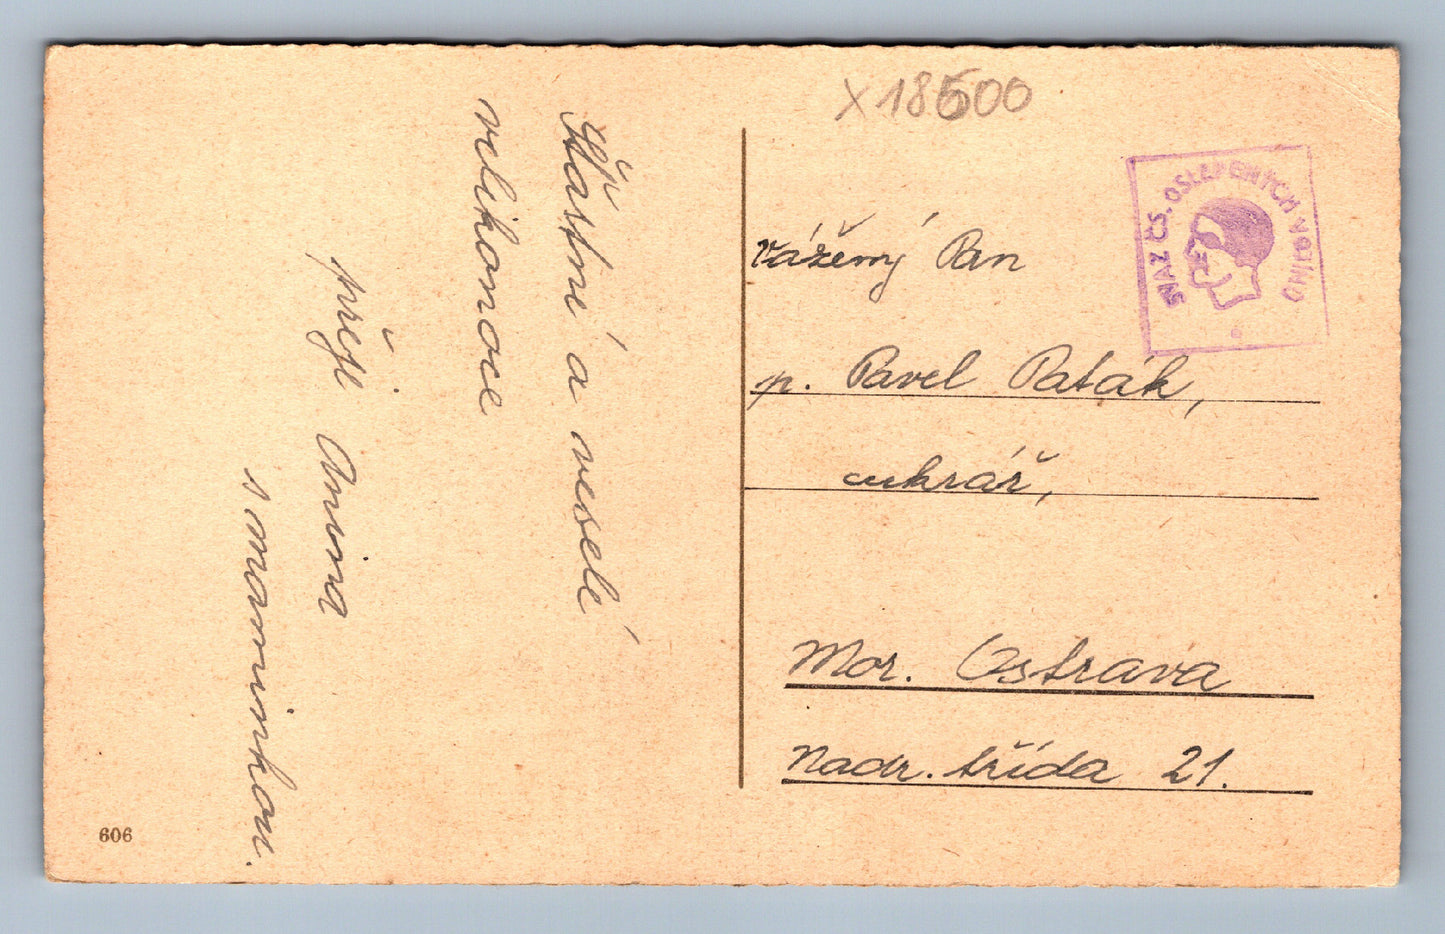 x 18500
SVAZ ČS. OSLEPENÝCH VOJÍNŮ
Šťastné a veselé
velikonoce
přeje Anna
s maminkou.
Vážený Pan
p. Pavel Paták,
cukrář,
Mor. Ostrava
Nádr. třída 21.
606